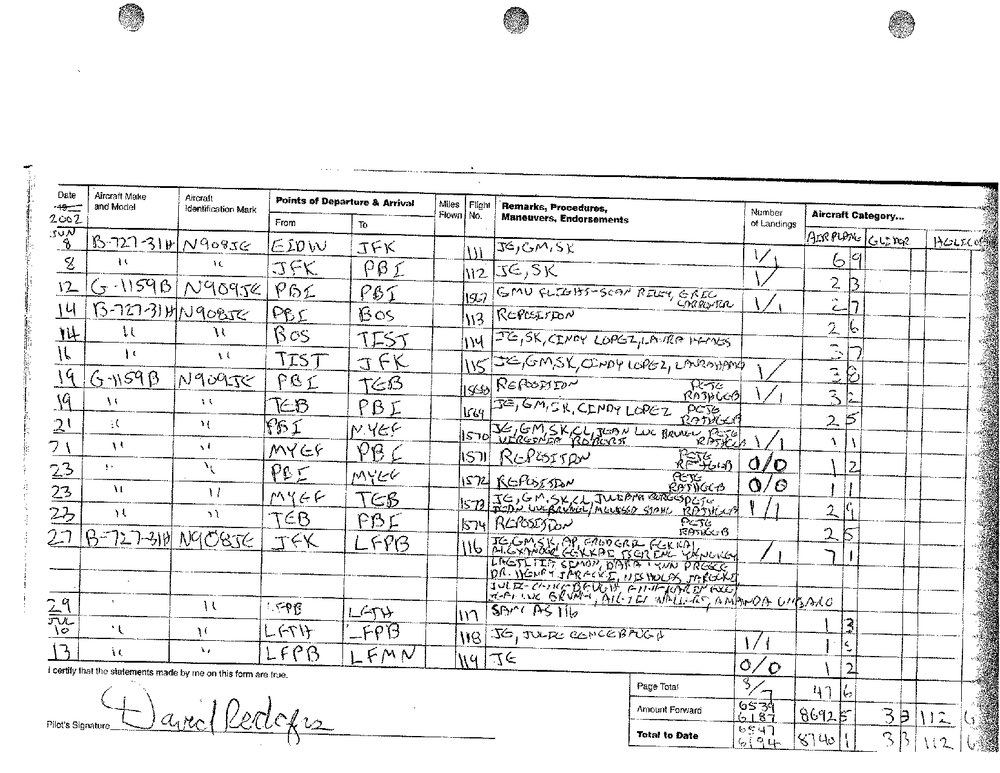 Date
19
2002
Aircraft Make and Model
Aircraft Identification Mark
Points of Departure & Arrival
From
To
Miles Flown
Flight No.
Remarks, Procedures, Maneuvers, Endorsements
Number of Landings
Aircraft Category...
AIRPLANE GLIDER
JUN
8 B-727-31H N908JE EIDW JFK 111 JE, GM, SK 1/1 6 9
8 " " JFK PBI 112 JE, SK 1/ 2 3
12 G-1159B N909JE PBI PBI 1567 GMU FLIGHT-SEAN RILEY, ERIC 1/1 2 7
14 B-727-31H N908JE PBI BOS 113 REPOSITION 2 6
14 " " BOS TIST 114 JE, SK, CINDY LOPEZ, 3 7
16 " " TIST JFK 115 JE, GM, SK, CINDY LOPEZ, 1/ 3 8
19 G-1159B N909JE PBI TEB REPOSITION PETE RATHGEB 1/1 3 2
19 " " TEB PBI 1569 JE, GM, SK, CINDY LOPEZ PETE RATHGEB 2 5
21 " " PBI MYEF 1570 JE, GM, SK, CL, JEAN LUC BRUNEL PETE RATHGEB 1/1 1 1
21 " " MYEF PBI 1571 REPOSITION PETE RATHGEB 0/0 1 2
23 " " PBI MYEF 1572 REPOSITION PETE RATHGEB 0/0 1 1
23 " " MYEF TEB 1573 JE, GM, SK, CL, PETE
JEAN LUC BRUNEL, RATHGEB 1/1 2 9
23 " " TEB PBI 1574 REPOSITION PETE RATHGEB 2 5
27 B-727-31H N908JE JFK LFPB 116 JE, GM, SK, AP, FREDERIC FEKKAI, /1 7 1
ALEXANDER FEKKAI,
SIMON, DARA LYNN PREECE
DR. HENRY JARECKI, NICHOLAS JARECKI
JEAN LUC BRUNEL, AMANDA
29 " " LFPB LFTH 117 SAME AS 116 1 3
JUL
10 " " LFTH LFPB 118 JE, JULIE 1/1 1
13 " " LFPB LFMN 119 JE 0/0 1 2
I certify that the statements made by me on this form are true.
Pilot's Signature David Rodgers
Page Total 8/7 47 6
Amount Forward 6539 6187 8692 5 3 3 112 6
Total to Date 6547 6194 8740 1 3 3 112 6